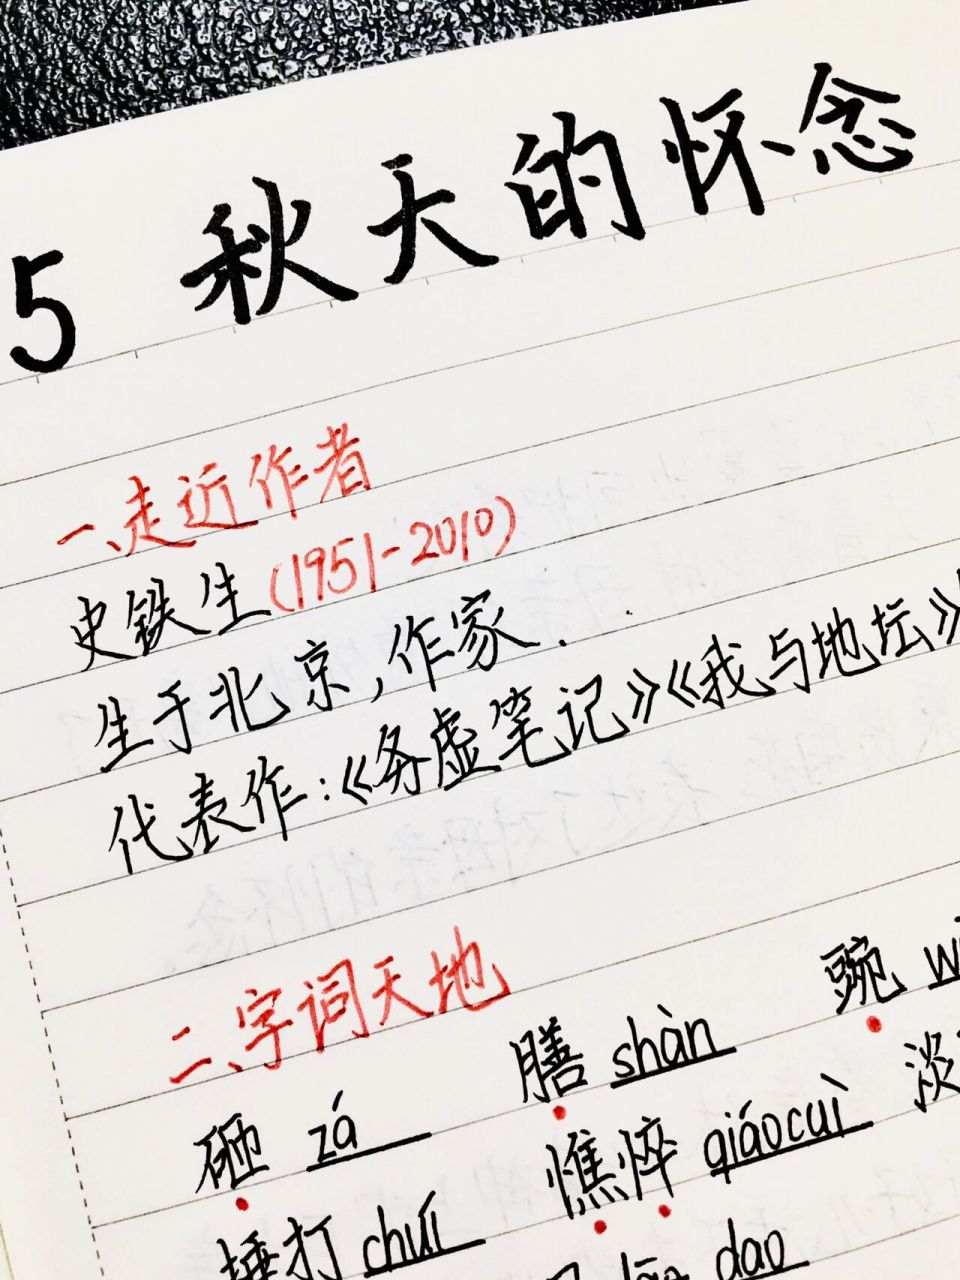 5 秋天的怀念
一、走近作者
史铁生(1951-2010)
生于北京,作家.
代表作:《务虚笔记》《我与地坛》
二、字词天地
砸 zá 膳 shàn 豌
捶打 chúi 憔悴 qiáocuì 淡
dao